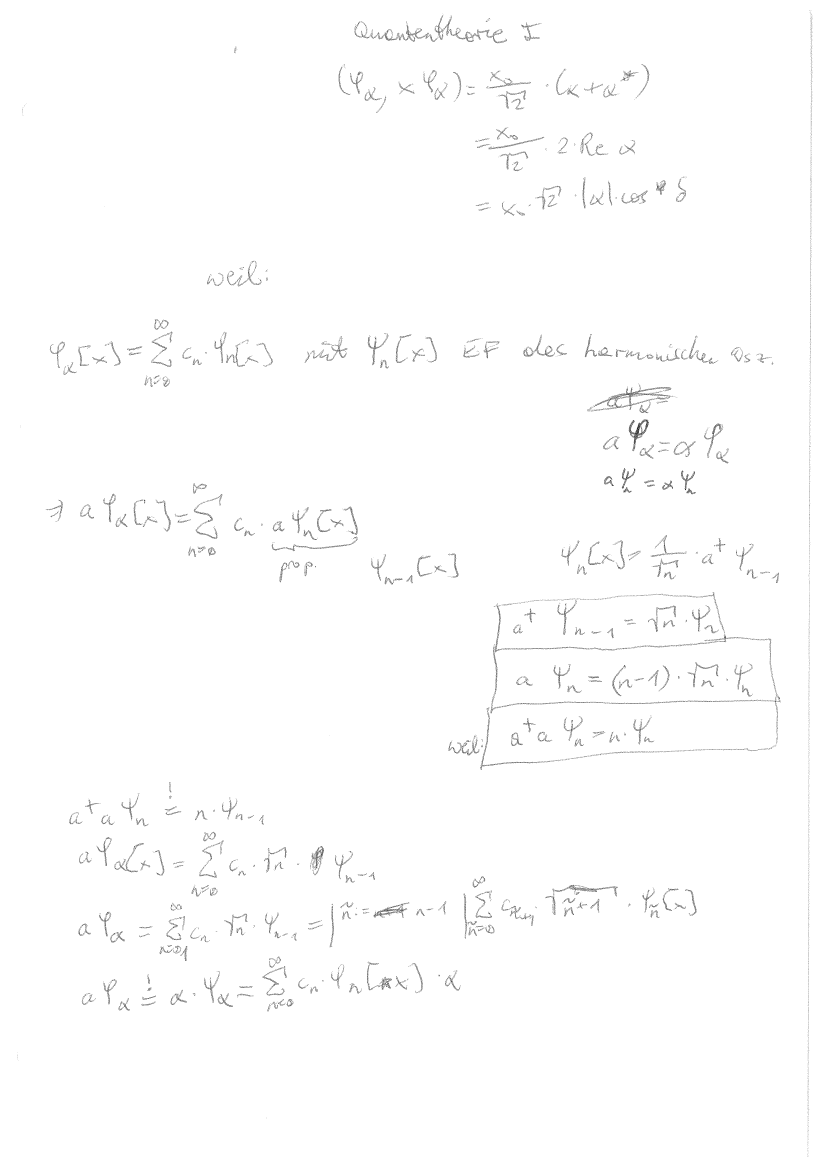 Quantentheorie I
(φ_α, x φ_α) = x₀/√2 · (α + α*)
= x₀/√2 · 2 · Re α
= x₀ · √2 · |α| · cos δ
weil:
φ_α[x] = ∑_{n=0}^∞ c_n · ψ_n[x] mit Ψ_n[x] EF des harmonischen Osz.
a φ_α = α φ_α
a Ψ_n = α Ψ_n
⇒ a φ_α[x] = ∑_{n=0}^∞ c_n · a Ψ_n[x]
prop. Ψ_{n-1}[x]
Ψ_n[x] = 1/√n · a⁺ Ψ_{n-1}
a⁺ Ψ_{n-1} = √n · Ψ_n
a Ψ_n = (n-1) · √n · Ψ_n
weil: a⁺a Ψ_n = n · Ψ_n
a⁺a Ψ_n =! n · Ψ_{n-1}
a φ_α[x] = ∑_{n=0}^∞ c_n · √n · Ψ_{n-1}
a φ_α = ∑_{n=1}^∞ c_n · √n · Ψ_{n-1} = | ñ := n-1 | ∑_{ñ=0}^∞ c_{ñ+1} · √(ñ+1) · Ψ_ñ[x]
a φ_α =! α · φ_α = ∑_{n=0}^∞ c_n · φ_n[x] · α